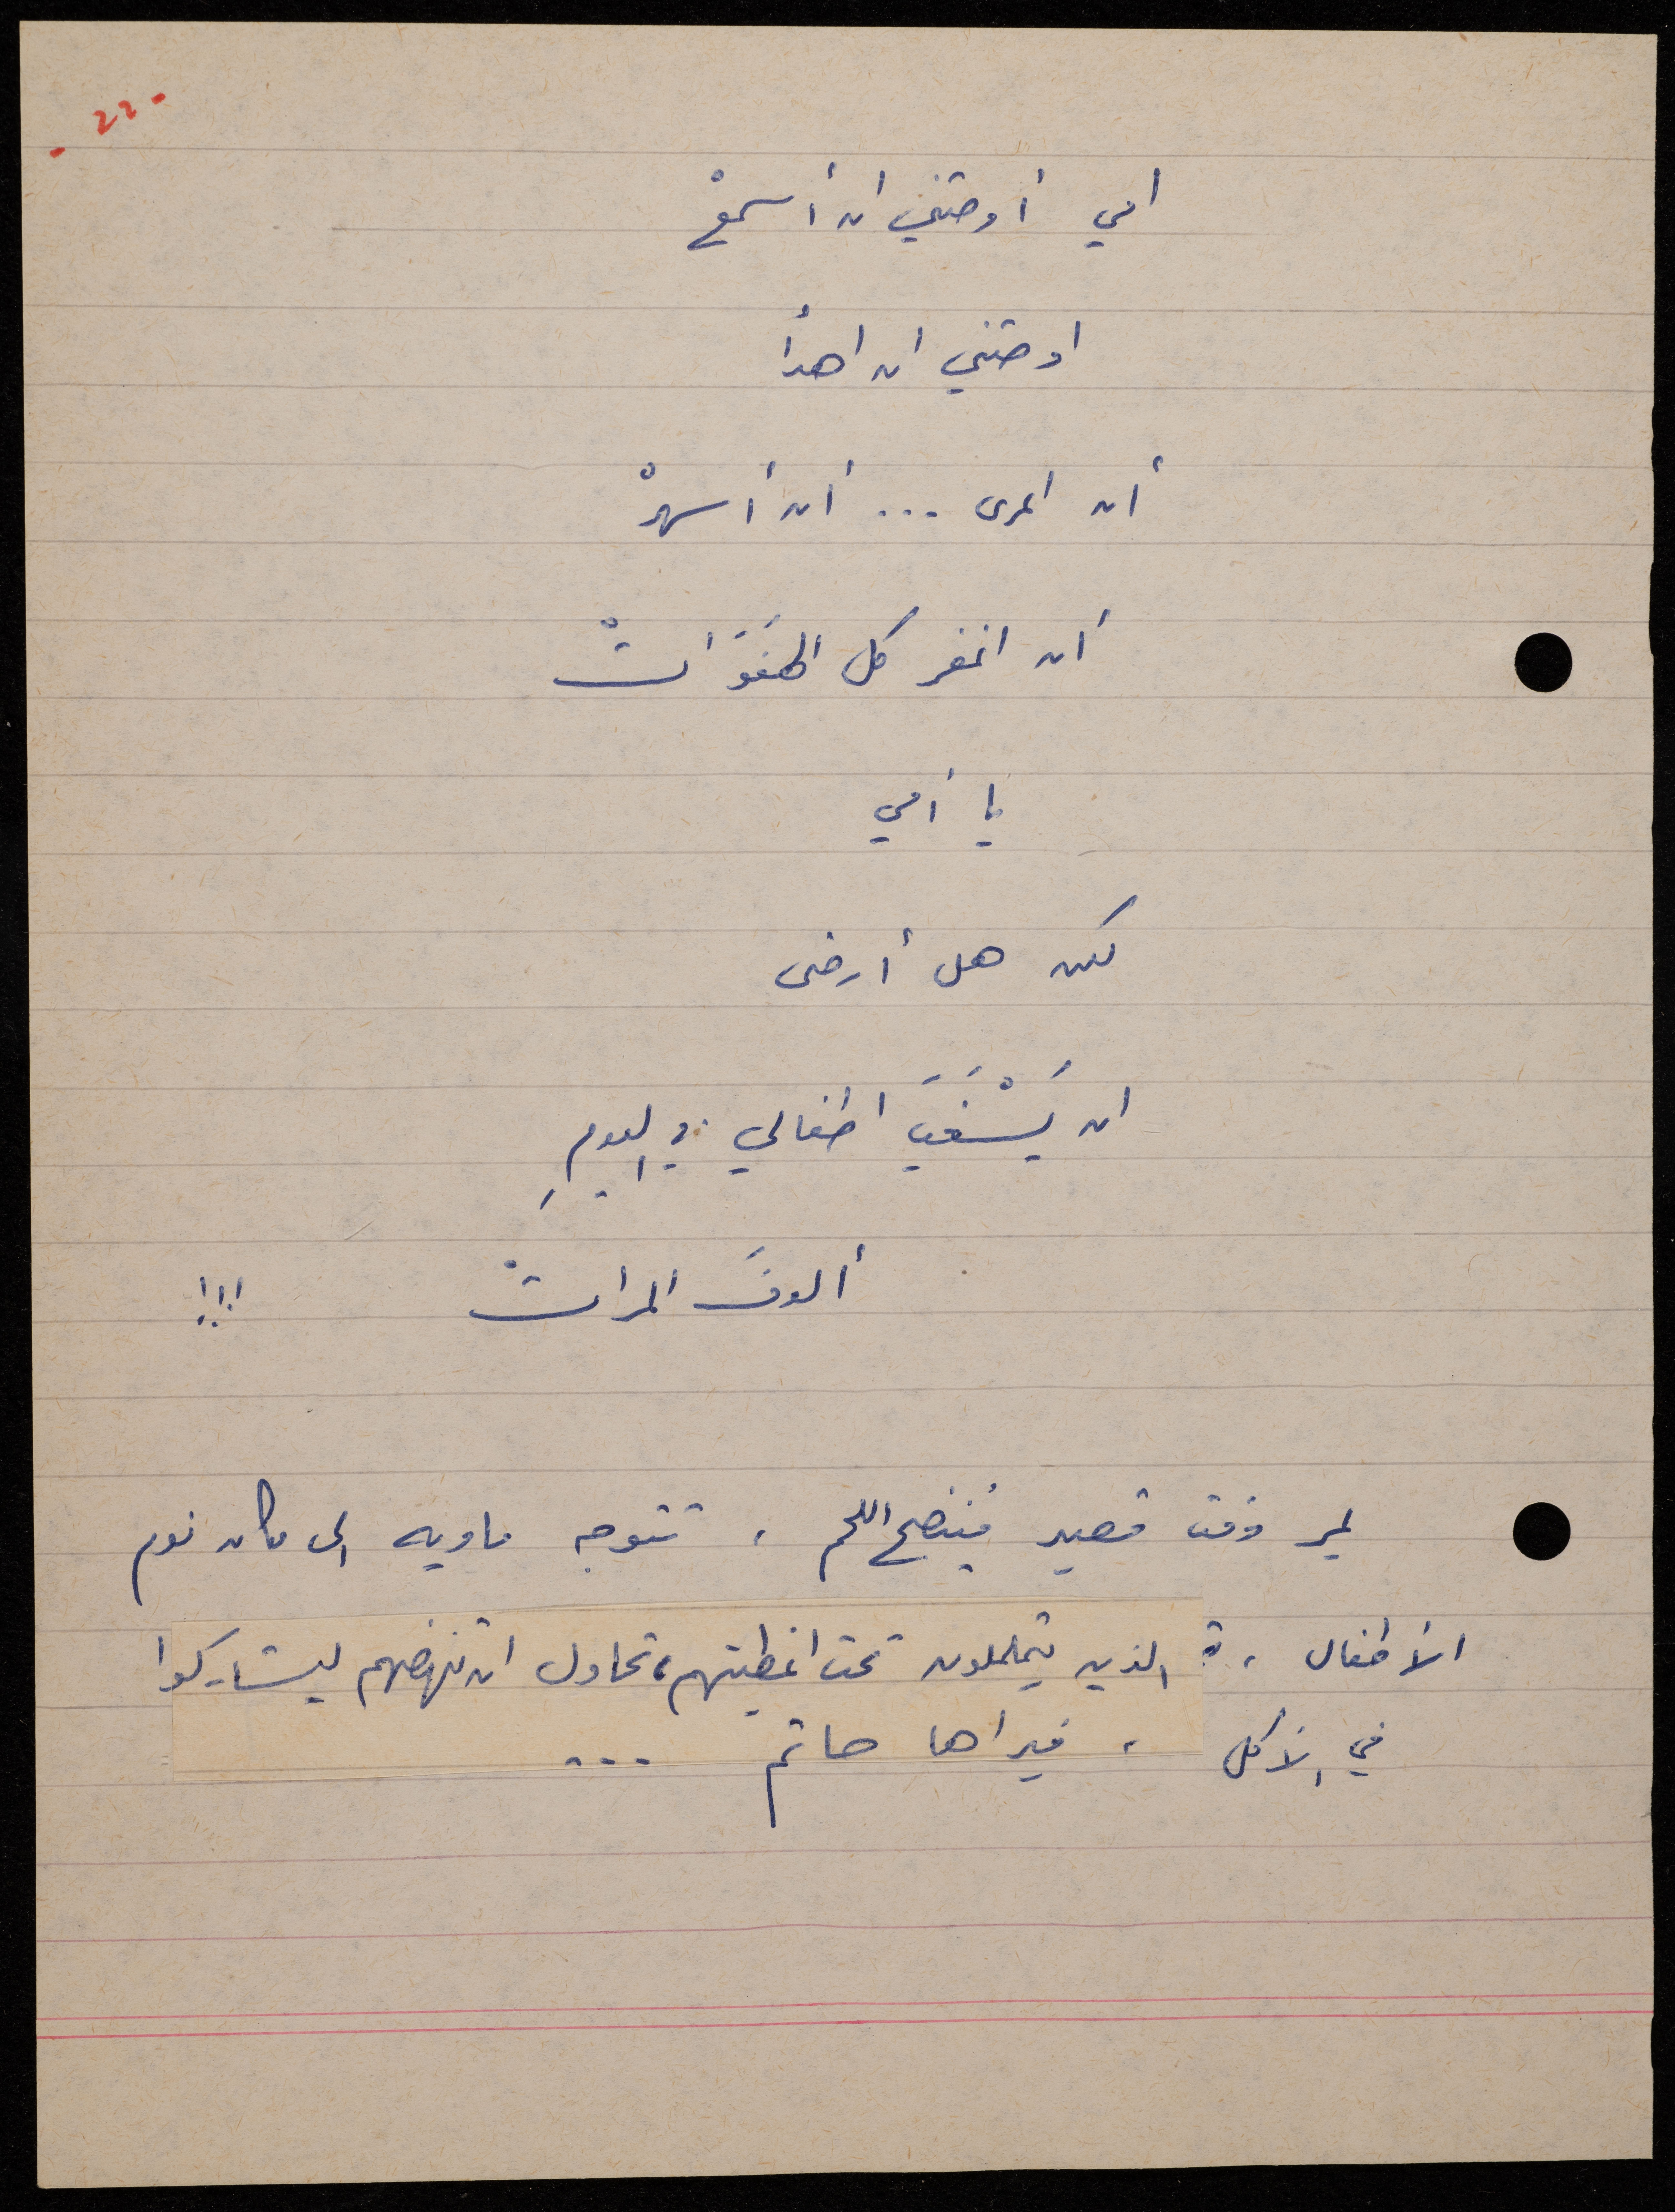 - ٢٢ -
امي أوصتني ان أسمعْ
اوصتني ان اهدأ
أن اعرى ... أن أسهرْ
أن اغفر كل الهفَوَاتْ
يا أمي
لكن هل أرضى
ان يَسْغَبَ اطفالي في اليومِ
ألوفَ المراتْ !!!
يمر وقت قصير فينضج اللحم ، تتوجه ماويه الى مكان نوم
الأطفال ، الذين يتململون تحت اغطيتهم، تحاول ان تنهضهم ليشاركوا
في الأكل ، فيراها حاتم ...